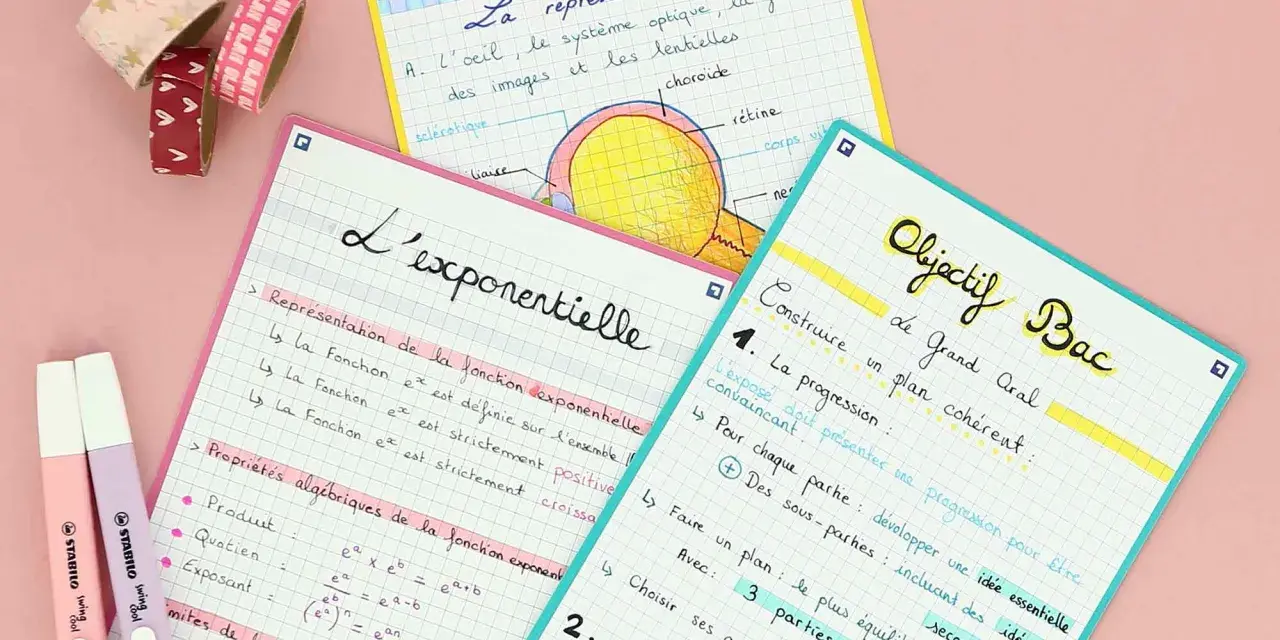 La
A. L'oeil, le système optique, la
des images et les lentilles
choroïde
rétine
sclérotique
corps
L'exponentielle
> Représentation de la fonction exponentielle
↳ La fonction eˣ est définie sur l'ensemble
↳ La fonction eˣ est strictement positive
↳ La fonction eˣ est strictement
> Propriétés algébriques de la fonction
• Produit : eᵃ × eᵇ = eᵃ⁺ᵇ
• Quotien : eᵃ/eᵇ = eᵃ⁻ᵇ
• Exposant : (eᵃ)ⁿ = eᵃⁿ
de
Objectif Bac
Le Grand Oral
Construire un plan cohérent :
1. La progression :
L'exposé doit présenter une progression pour être
convaincant.
↳ Pour chaque partie : dévolopper une idée essentielle
+ Des sous-parties : incluant des
↳ Faire un plan : le plus
Avec : 3 parties
↳ Choisir ses
2.
STABILO
swing
cool
STABILO
swing
cool